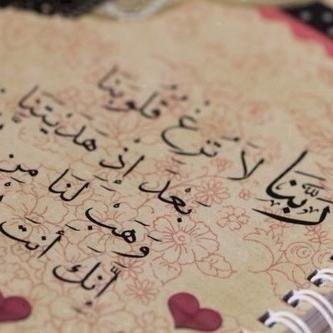 رَبَّنَا لَا تُزِغْ قُلُوبَنَا
بَعْدَ إِذْ هَدَيْتَنَا
وَهَبْ لَنَا مِنْ
إِنَّكَ أَنْتَ